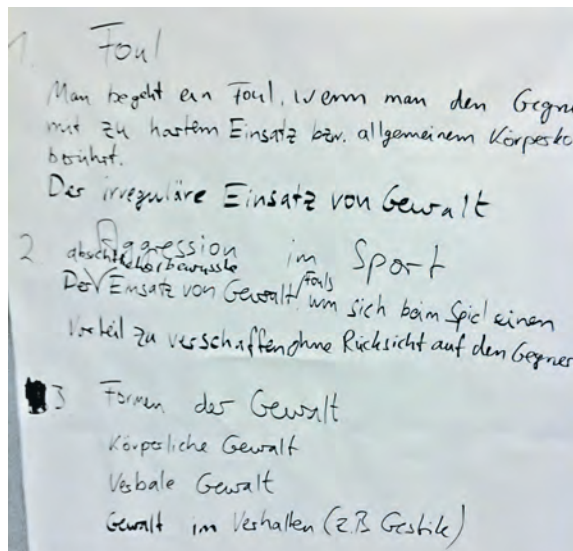 1. Foul
Man begeht ein Foul, wenn man den Gegne
mit zu hartem Einsatz bzw. allgemeinem Körperko
berührt.
Der irreguläre Einsatz von Gewalt
2 Aggression im Sport
absichtliche/bewusste
Der Einsatz von Gewalt/Fouls um sich beim Spiel einen
Vorteil zu verschaffen ohne Rücksicht auf den Gegner
3 Formen der Gewalt
Körperliche Gewalt
Verbale Gewalt
Gewalt im Verhalten (z.B Gestik)